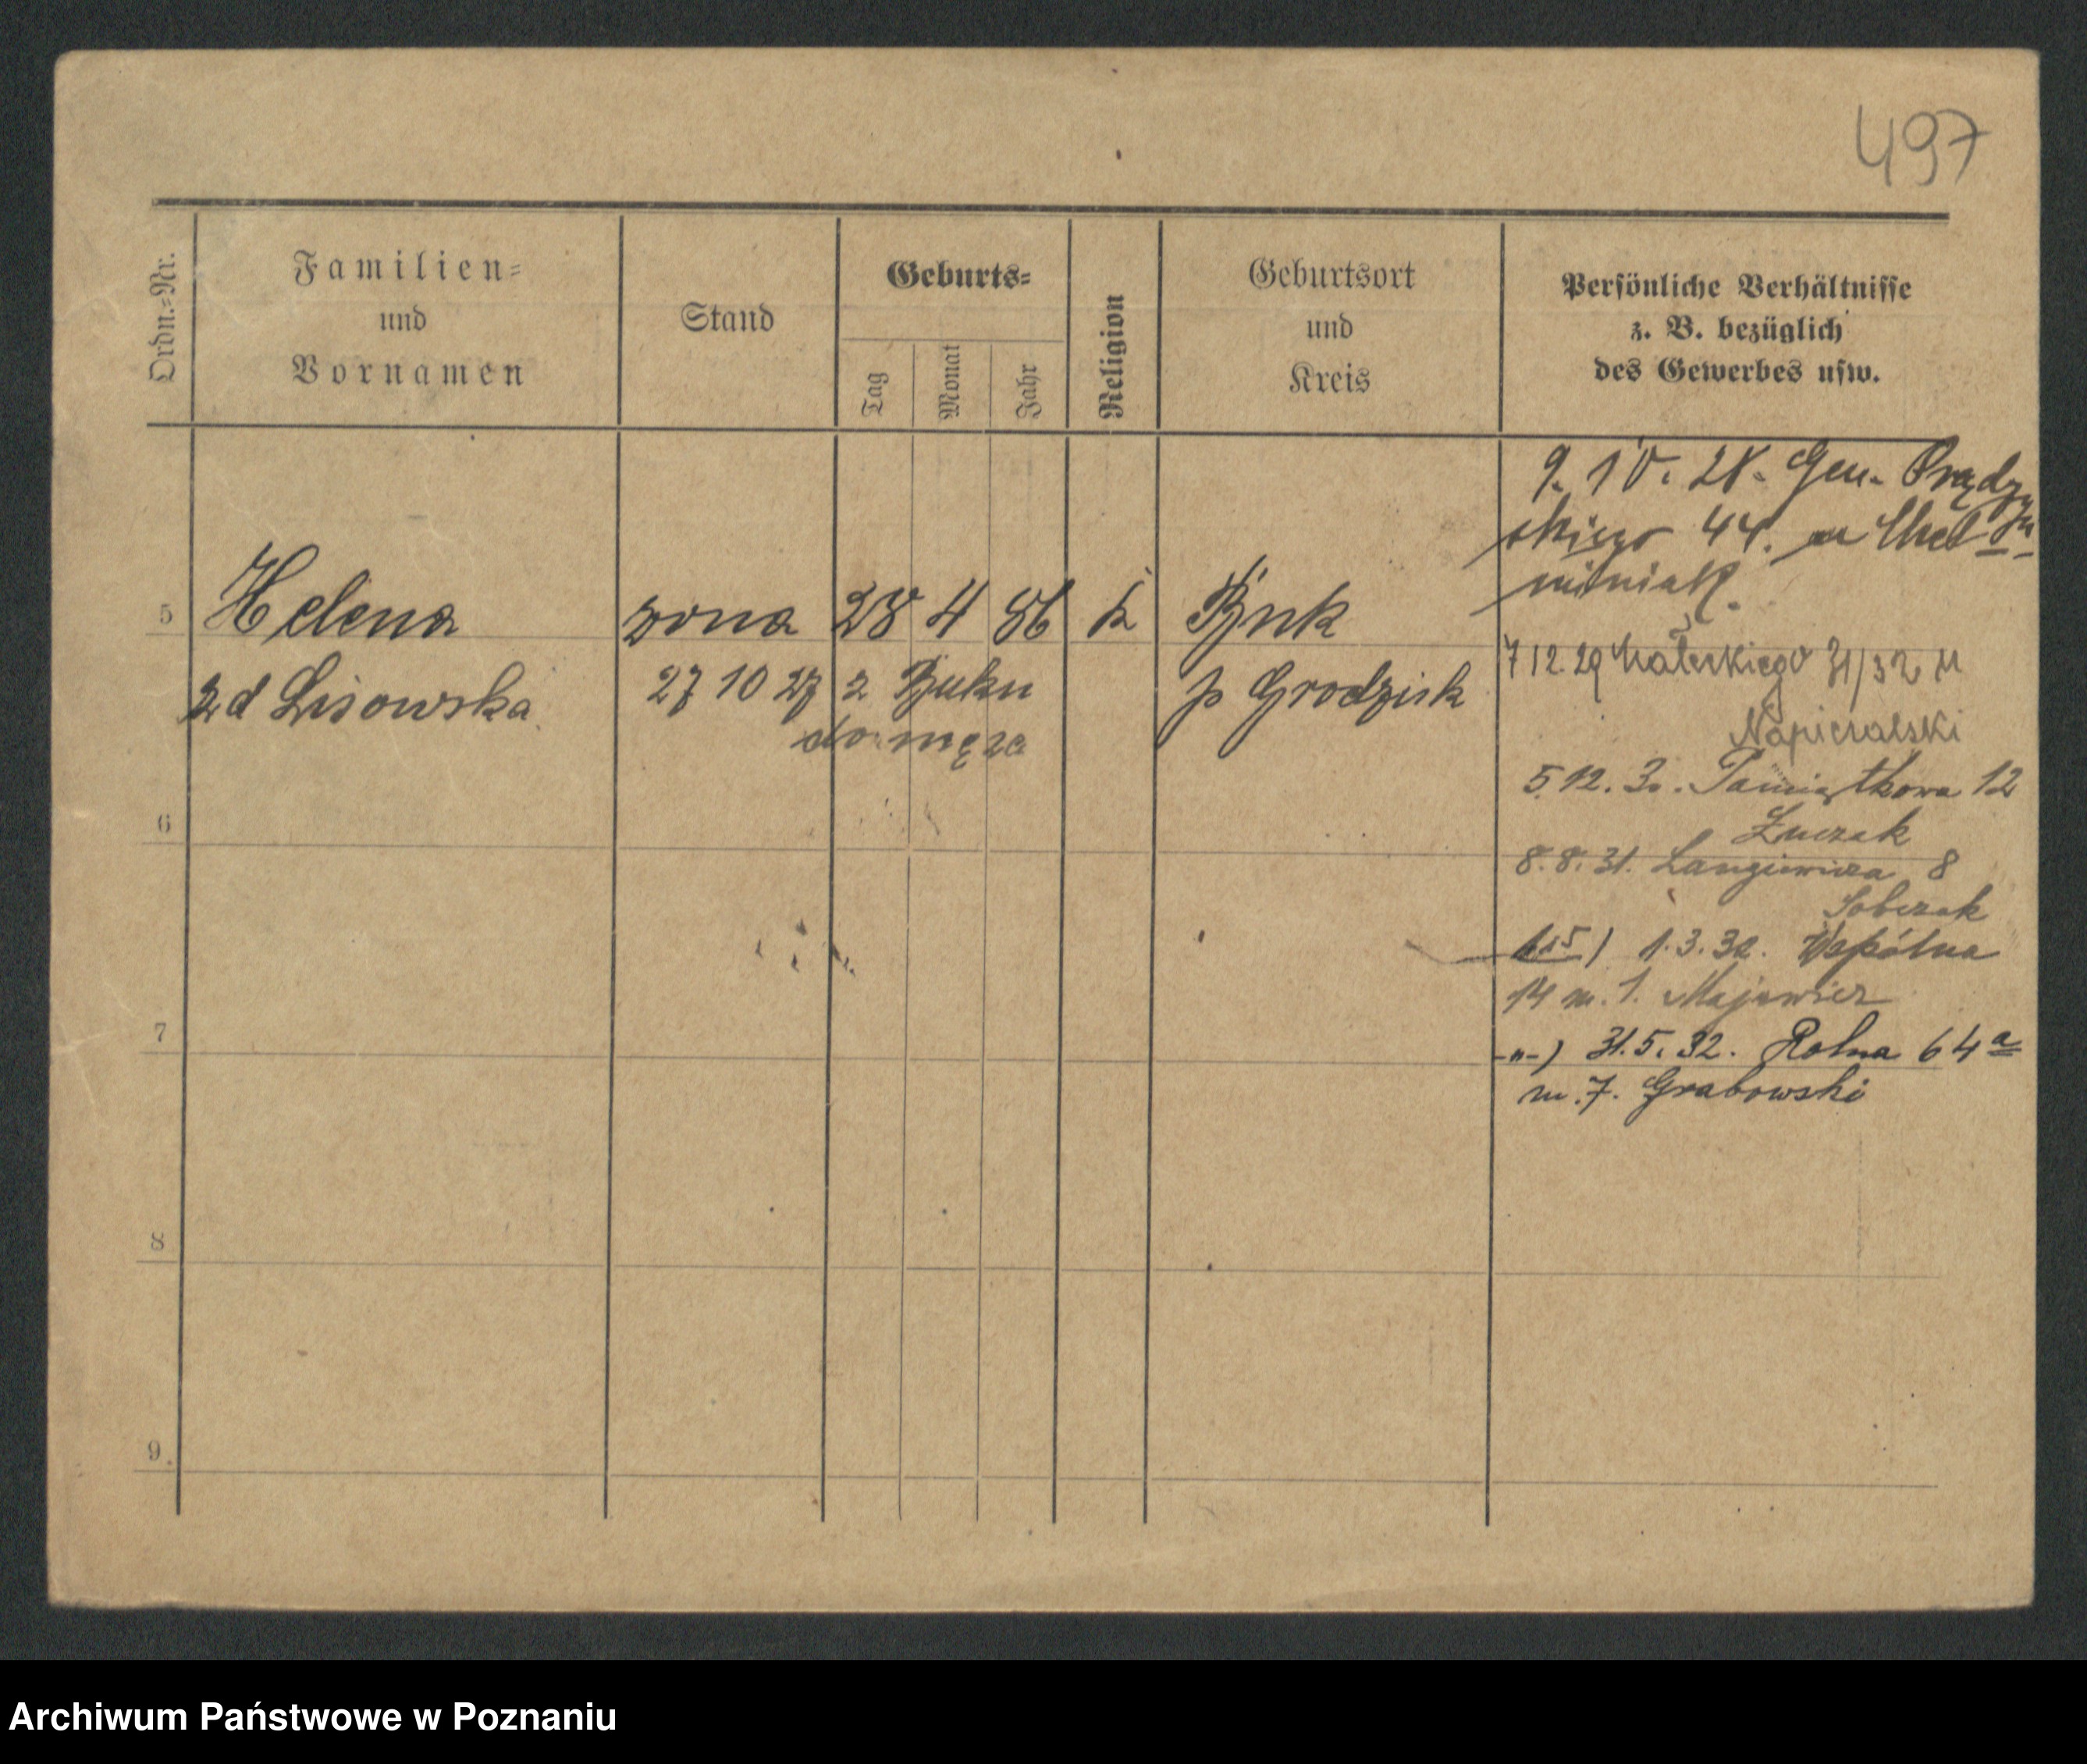 497
Ordn.=Nr.
Familien=
und
Vornamen
Stand
Geburts=
Tag
Monat
Jahr
Religion
Geburtsort
und
Kreis
Persönliche Verhältnisse
z. B. bezüglich
des Gewerbes usw.
9. 10. 28. Gen. Prądzyń
skiego 44.
5 Helena żona 28 4 86 k Buk
zd Lisowska 27 10 27 z Buku p Grodzisk
do męża
7 12. 29 Małeckiego 31/32 u
Napieralski
5. 12. 30. Pamiątkowa 12
6
8. 8. 31. Langiewicza 8
Sobczak
1. 3. 32. Wspólna
14 m. 1. Majewicz
7
-"-) 31. 5. 32. Rolna 64a
m. 7. Grabowski
8
9.
Archiwum Państwowe w Poznaniu